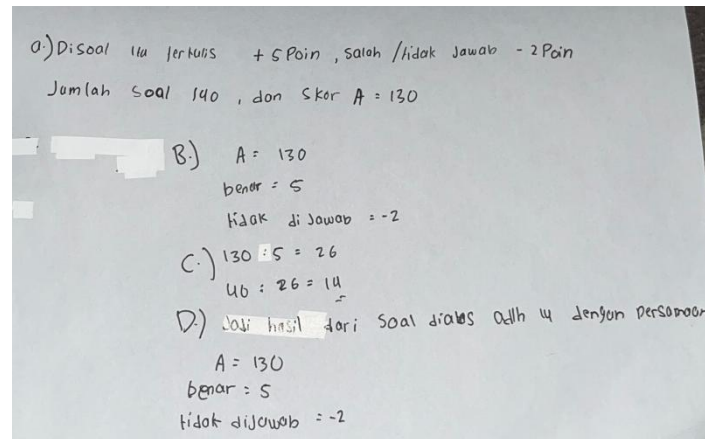 a.) Disoal itu tertulis + 5 Poin, Salah /tidak Jawab - 2 Poin
Jumlah Soal 140, dan Skor A = 130
B.) A = 130
benar = 5
tidak di Jawab = -2
C.) 130 : 5 = 26
40 : 26 = 14
D.) Jadi hasil dari Soal diatas adlh 14 dengan Persamaan
A = 130
benar : 5
tidak dijawab = -2